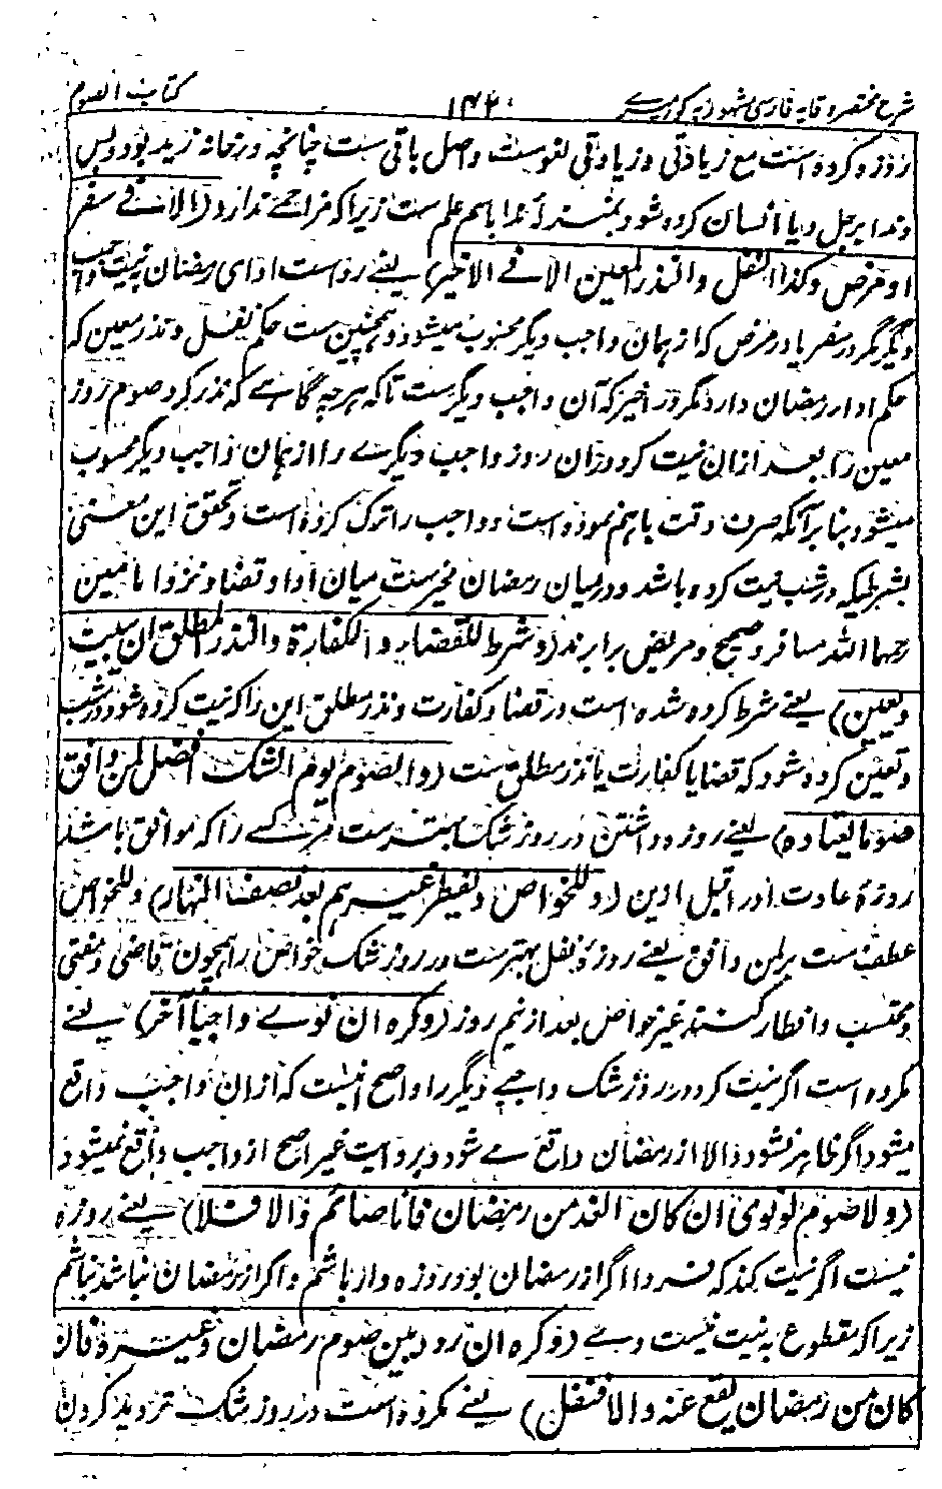 شرح مختصر وقایه فارسی مشهور به کور میری ۱۴۲۰ کتاب الصوم
روزه کرده است مع زیادتی و زیادتی لغوست و اصل باقی ست چنانچه در خانه زید بود و پس
ندا برجل و یا انسان کرده شود بمنزله ندا باسم علم ست زیراکه مزاحمے ندارد (الا فے سفر
او مرض وکذا النفل والنذر المعین الا فے الاخیر) یعنے رواست ادای رمضان بنیت واجب
دیگر مگر در سفر یا در مرض که از همان واجب دیگر محسوب میشود و همچنین ست حکم نفل و نذر معین که
حکم ادا رمضان دارد مگر در اخیر که آن واجب دیگرست تا که هر چه گاہے که نذر کرد صوم روز
معین را بعد ازان نیت کرد دران روز واجب دیگرے را از همان واجب دیگر محسوب
میشود بنا بر آنکه صرف وقت باهم نموده است و واجب را ترک کرده است و تحقق این معنی
بشرطیکه در شب نیت کرده باشد و درمیان رمضان مخیرست میان ادا و قضا و نزد امامین
رحمهما الله مسافر و صحیح و مریض برابرند (وشرط للقضاء والکفارة والنذر المطلق ان یبیت
ویعین) یعنے شرط کرده شده است در قضا و کفارت و نذر مطلق این را که نیت کرده شود در شب
و تعین کرده شود که قضا یا کفارت یا نذر مطلق ست (والصوم یوم الشک افضل لمن وافق
صوما یعتاده) یعنے روزه داشتن در روز شک بهترست مر کسے را که موافق باشد
روزهٔ عادت او را قبل ازین (وللخواص ویفطر غیرهم بعد نصف النهار) وللخواص
عطف ست بر لمن وافق یعنے روزهٔ نفل بهترست در روز شک خواص را همچون قاضی و مفتی
و محتسب و افطار کنند غیر خواص بعد از نیم روز (وکره ان نوے واجبا آخر) یعنے
مکروه است اگر نیت کرد در روز شک واجبے دیگر را و اصح اینست که ازان واجب واقع
میشود اگر ظاهر نشود والا از رمضان واقع مے شود و بروایت غیر اصح از واجب واقع نمیشود
(ولا صوم لو نوی ان کان الغد من رمضان فانا صائم والا فلا) یعنے روزه
نیست اگر نیت کند که فردا اگر از رمضان بود روزه دار باشم و اگر از رمضان نباشد نباشم
زیراکه مقطوع به نیت نیست وے (وکره ان ردد بین صوم رمضان وغیره فان
کان من رمضان یقع عنه والا فنفل) یعنے مکروه است در روز شک تردید کردن